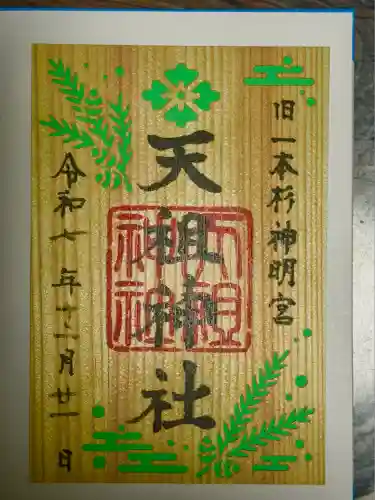 旧一本杉神明宮
天祖神社
天祖神社
令和七年十二月廿一日